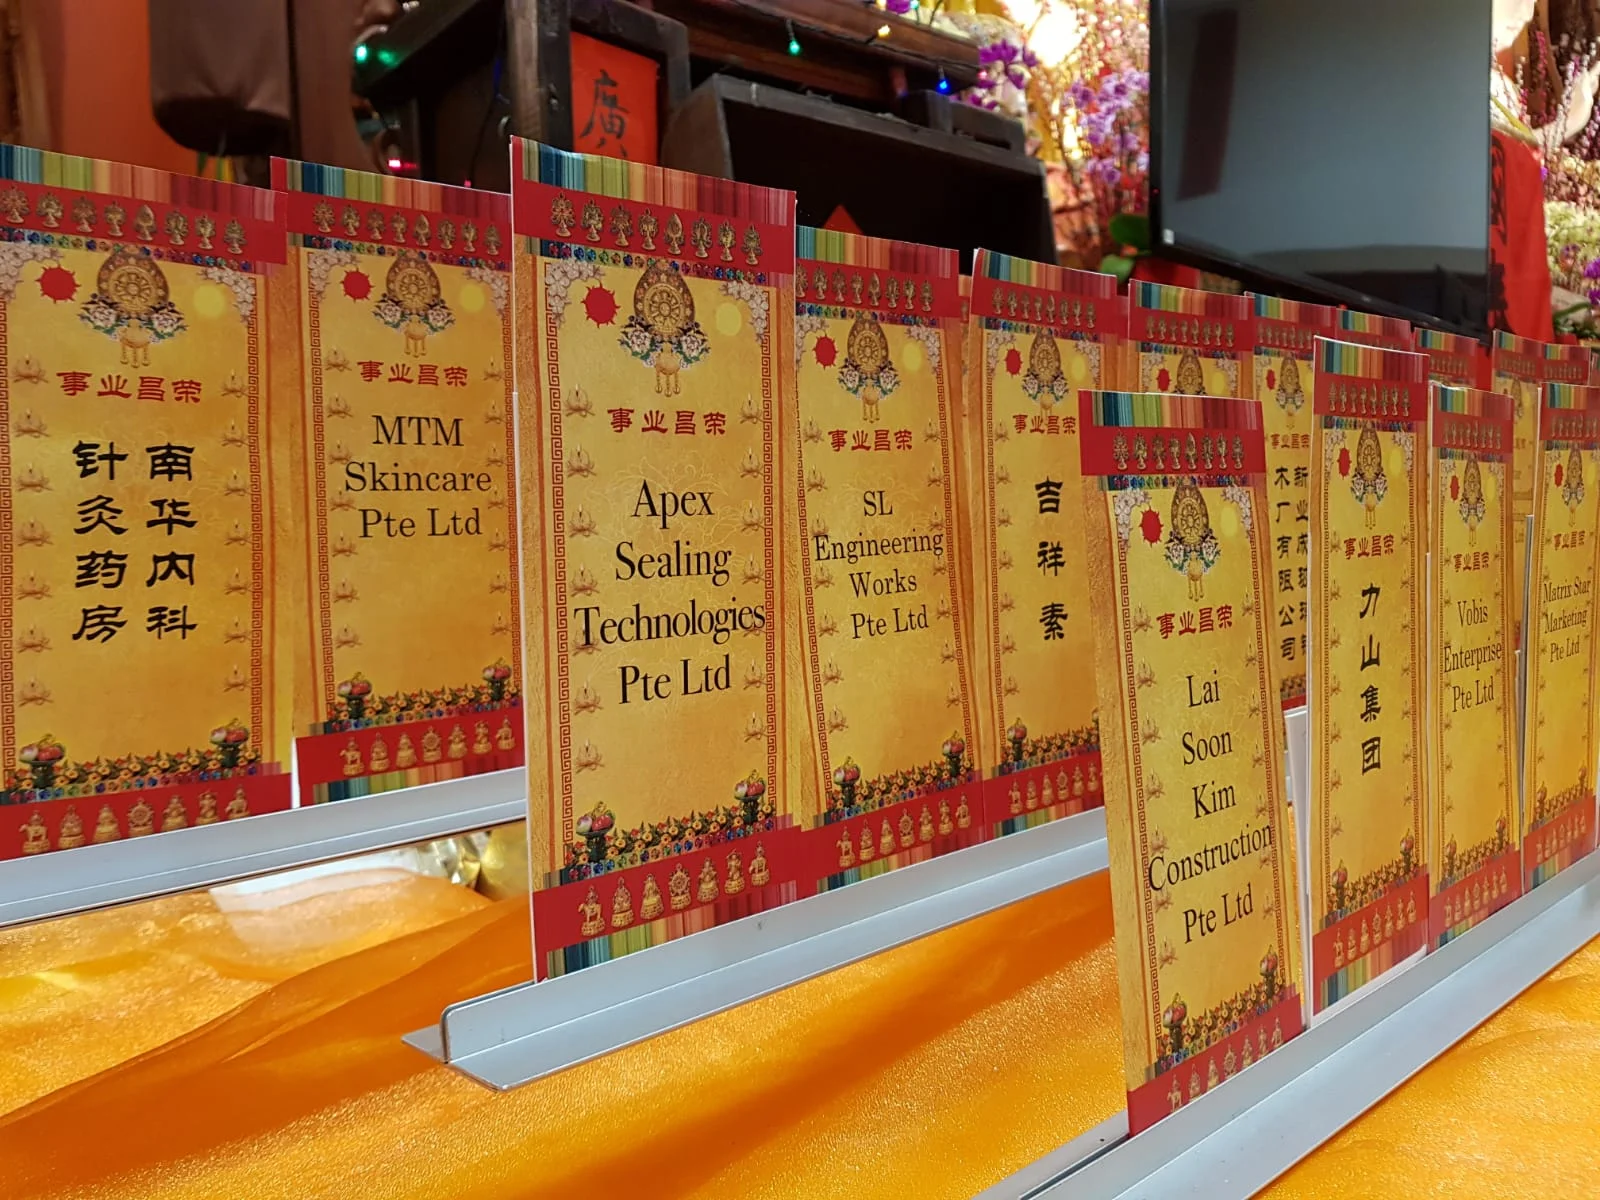 廣
事业昌荣
南华内科
针灸药房
事业昌荣
MTM
Skincare
Pte Ltd
事业昌荣
Apex
Sealing
Technologies
Pte Ltd
事业昌荣
SL
Engineering
Works
Pte Ltd
事业昌荣
吉祥素
事业昌荣
Lai
Soon
Kim
Construction
Pte Ltd
事业昌荣
新业成
木厂有限公司
事业昌荣
力山集团
事业昌荣
Vobis
Enterprise
Pte Ltd
事业昌荣
Matrix Star
Marketing
Pte Ltd